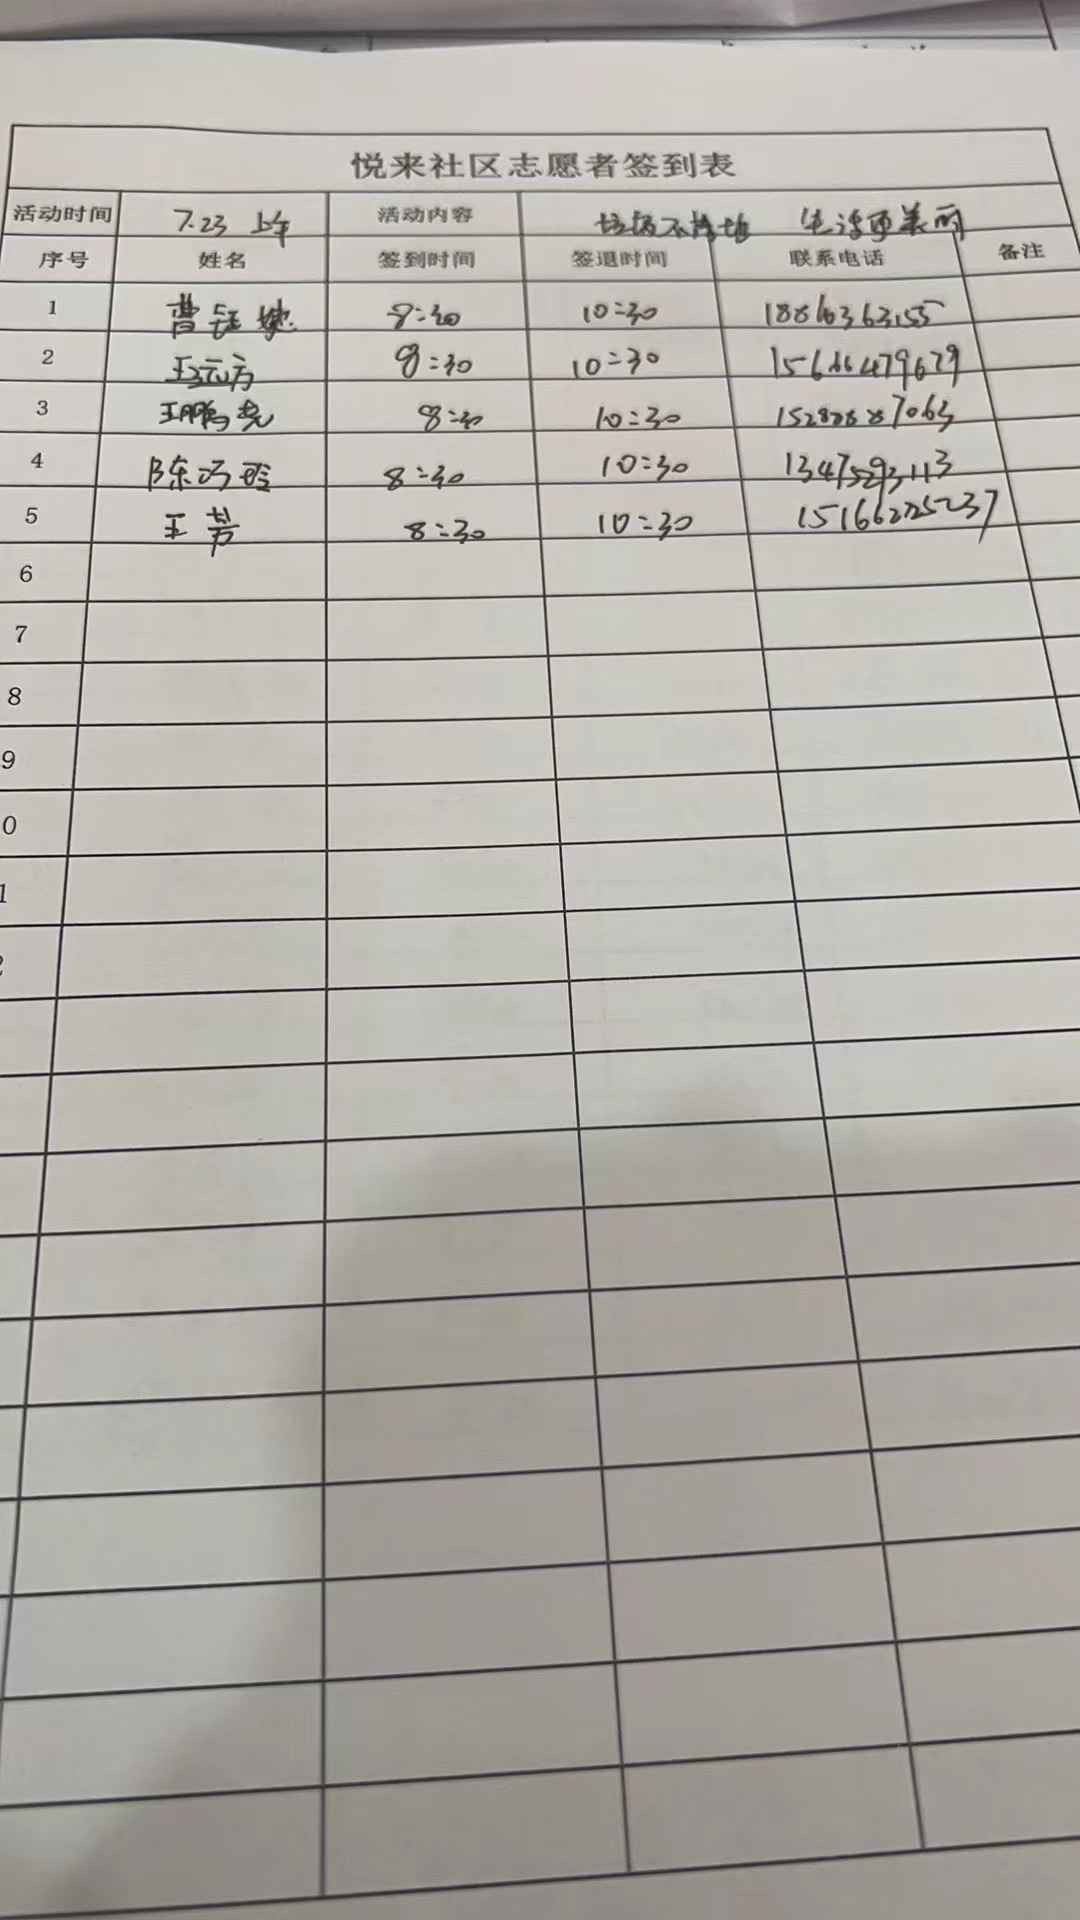 悦来社区志愿者签到表
活动时间 7.23 上午 活动内容 垃圾不落地 生活更美丽
序号 姓名 签到时间 签退时间 联系电话 备注
1 曹 8:30 10:30
2 王元方 8:30 10:30 15666479679
3 王鹏尧 8:30 10:30
4 陈巧玲 8:30 10:30 13475293113
5 王芳 8:30 10:30
6
7
8
9
0
1
2